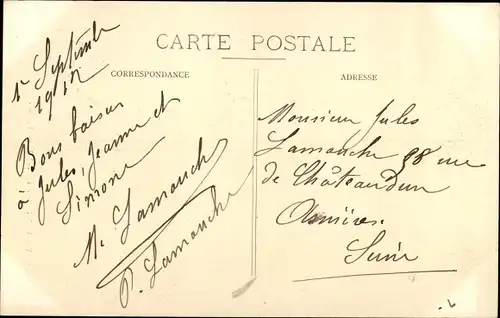 CARTE POSTALE
CORRESPONDANCE
1e Septembre
1912
Bons baisers
à Jules, Jeanne et
Simone
M. Lamouche
P. Lamouche
ADRESSE
Monsieur Jules
Lamouche 88 rue
de Châteaudun
Asnières
Seine